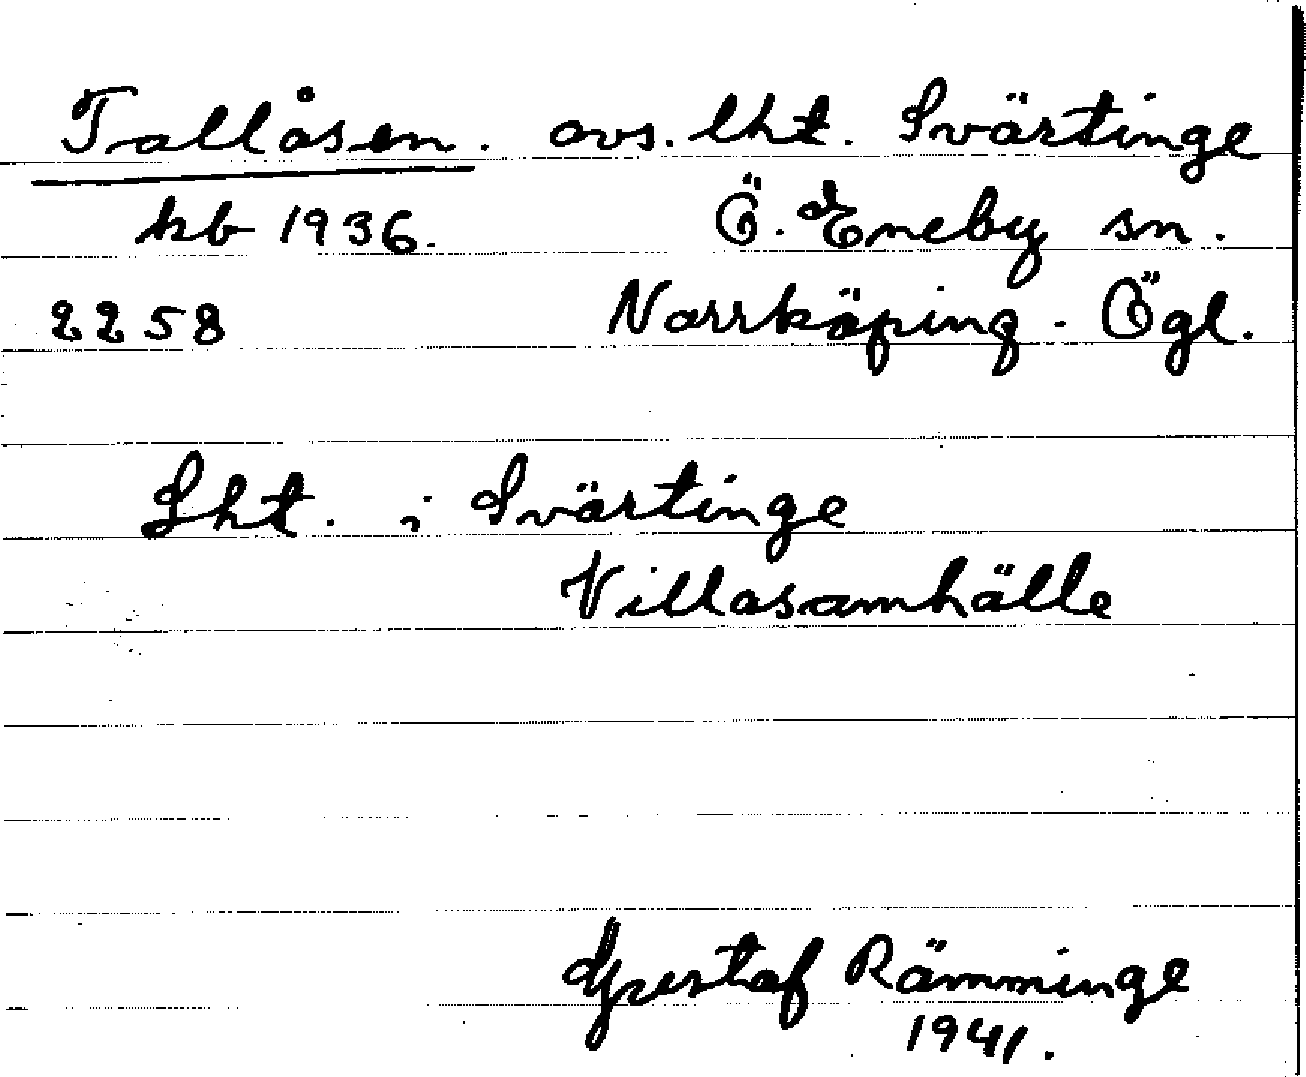 Tallåsen. avs. lht. Svärtinge
kb 1936. Ö. Eneby sn.
2258 Norrköping. Ögl.
Lht. i Svärtinge
Villasamhälle
Gustaf Rämminge
1941.